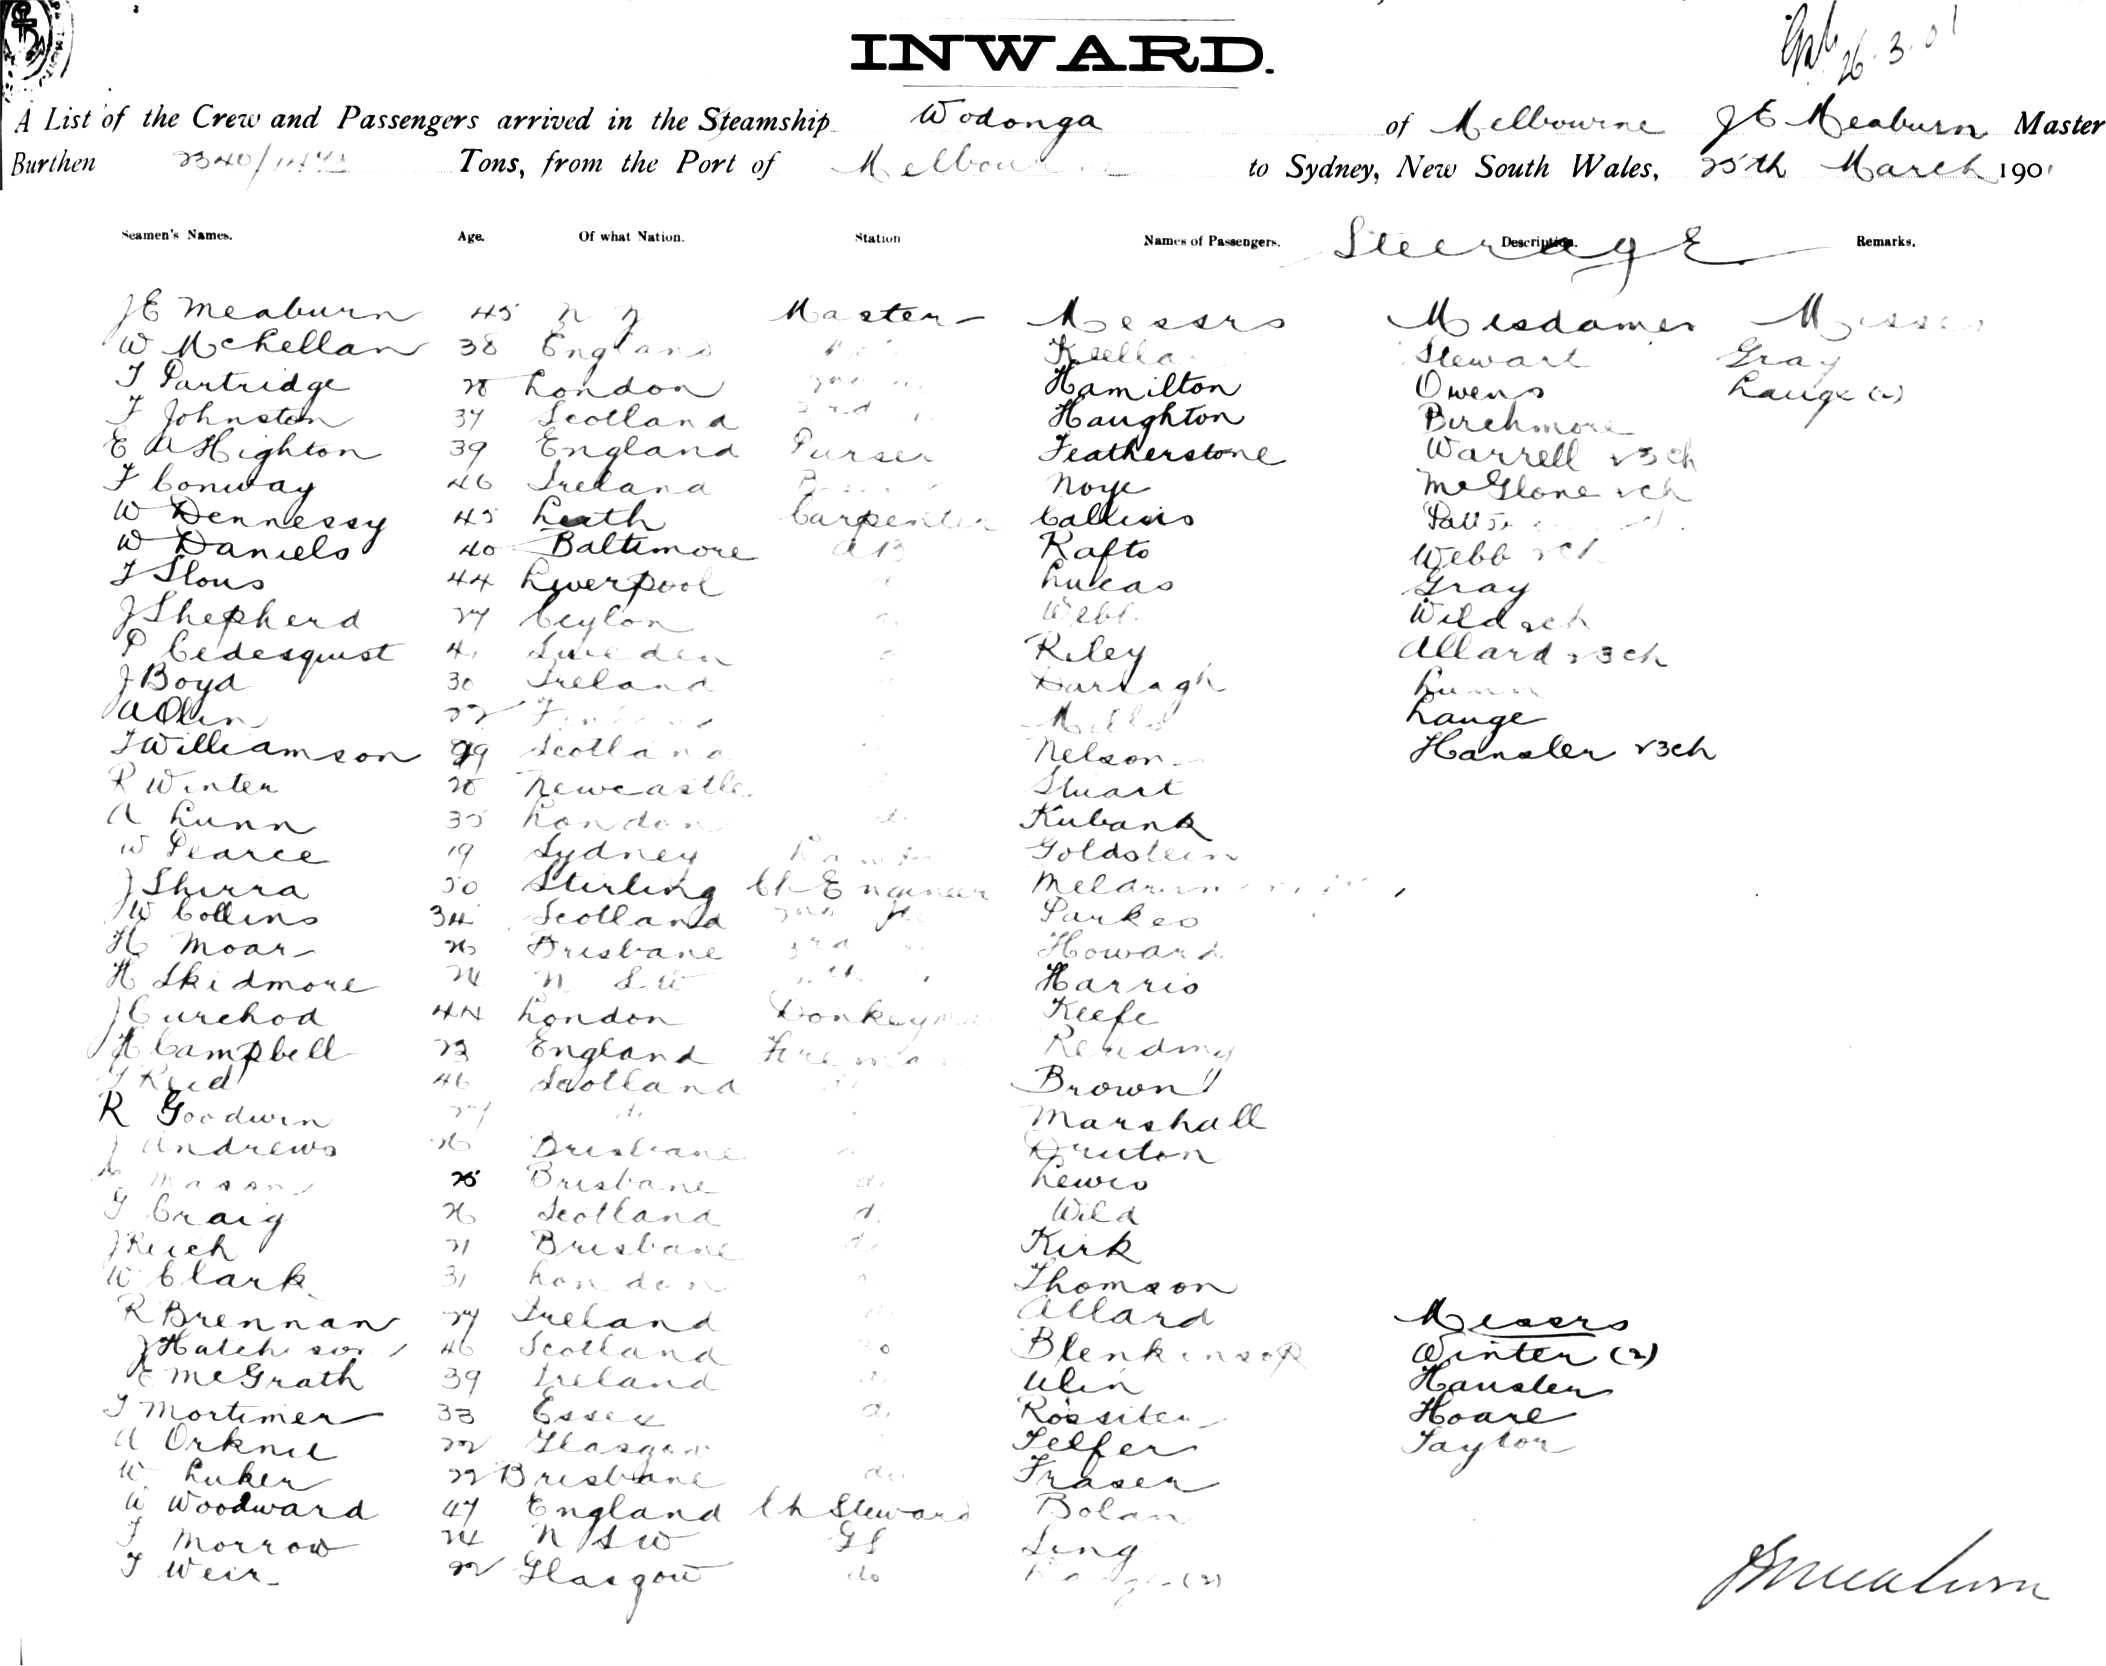 INWARD.
26.3.01
A List of the Crew and Passengers arrived in the Steamship Wodonga of Melbourne J E Meaburn Master
Burthen 2340/ Tons, from the Port of Melbourne to Sydney, New South Wales, 25th March 1901
Seamen's Names. Age. Of what Nation. Station Names of Passengers. Description. Remarks.
Steerage
J E Meaburn 45 N Z Master Messrs Mesdames Misses
W McLellan 38 England Keella Stewart Gray
T Partridge 28 London Hamilton Owens Lange (2)
F Johnston 37 Scotland 3rd Haughton Birchmore
E A Highton 39 England Purser Featherstone Warrell & 3 ch
F Conway 46 Ireland Noye McGlone & ch
W Dennessy 45 Leith Carpenter Callins
W Daniels 40 Baltimore A B Rafto Webb & ch
T Slous 44 Liverpool Lucas Gray
J Shepherd 27 Ceylon Webb Wild & ch
P Cedesquist 41 Sweden Riley Allard & 3 ch
J Boyd 30 Ireland Darragh Lunn
A Olin 22 Mills Lange
T Williamson 29 Scotland Nelson Hansler & 3 ch
R Winter 28 Newcastle Stuart
A Lunn 35 London Kubank
W Pearce 19 Sydney Goldstein
J Shirra 50 Stirling Ch Engineer Meldrum
W Collins 34 Scotland 2nd Parkes
H Moar 26 Brisbane 3rd Howard
H Skidmore 24 N S W 4th Harris
J Curchod 44 London Donkeyman Keefe
H Campbell 23 England Fireman Reading
T Reid 46 Scotland Brown
R Goodwin 27 Marshall
J Andrews 26 Brisbane Druton
Mason 25 Brisbane do Lewis
T Craig 26 Scotland do Wild
J Reich 21 Brisbane do Kirk
W Clark 31 London Thomson
R Brennan 27 Ireland Allard Messrs
J Hatchison 46 Scotland do Blenkinsop Winter (2)
E McGrath 39 Ireland Ulin Hansler
T Mortimer 33 Essex do Rossiter Hoare
A Orknie 22 Glasgow Telfer Taylor
W Luker 22 Brisbane do Fraser
W Woodward 47 England Ch Steward Bolan
F Morrow 24 N S W G S Sing
T Weir 22 Glasgow do (2)
J E Meaburn